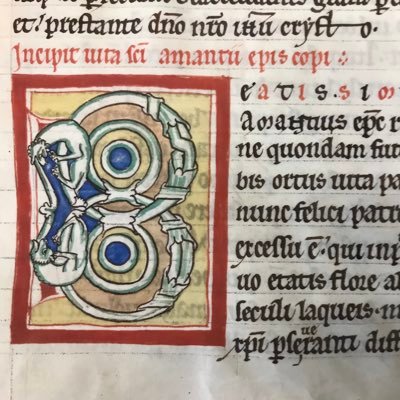 et. prestante dño nr̃o ih̃u crysto.
Incipit uita sc̃i amantii episcopi
BEATISSIM
Amantius ep̃c
ne quondam fut
bis ortus uita pa
nunc felici patr
excessu ẽ. qui inp
uo etatis flore al
seculi laqueis.
xp̃i pseueranti diff